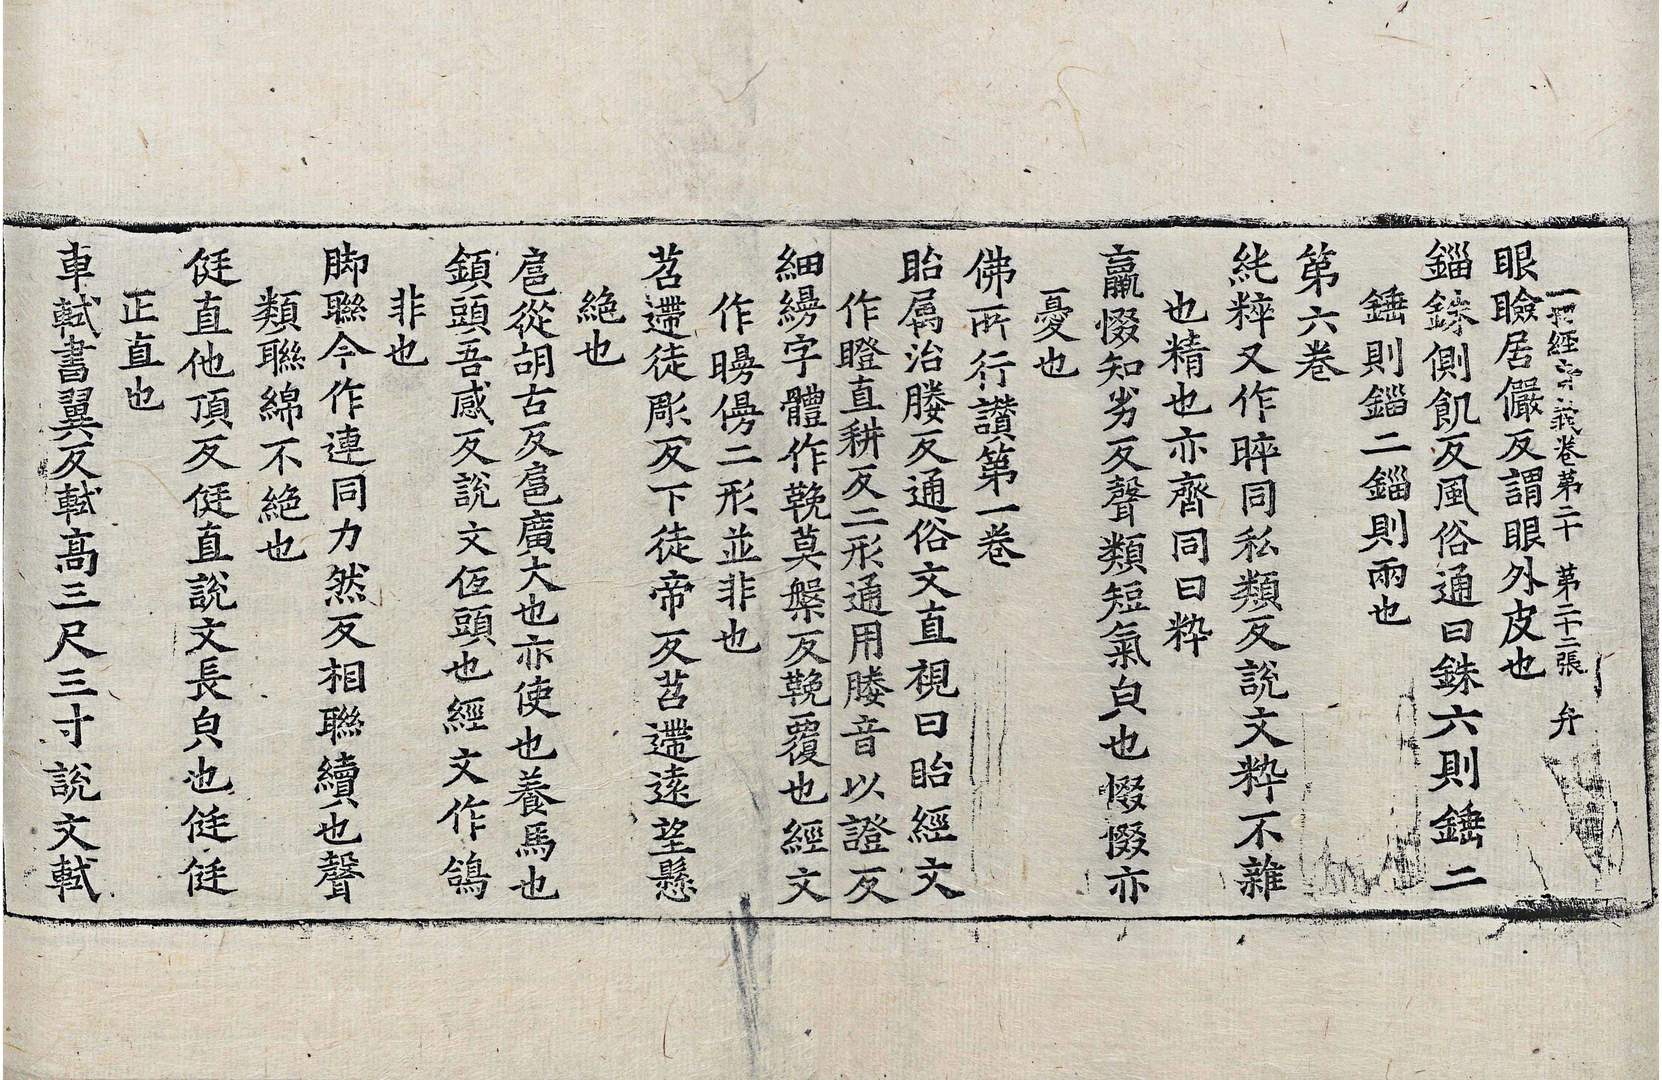 一切經音義卷第二十　第二十二張　弁
眼瞼居儼反謂眼外皮也
錙銖側飢反風俗通曰銖六則錘二
錘則錙二錙則兩也
第六卷
純粹又作睟同私類反說文粹不雜
也精也亦齊同曰粹
羸惙知劣反聲類短氣皃也惙惙亦
憂也
佛所行讚第一卷
眙屬治𦡳反通俗文直視曰眙經文
作瞪直耕反二形通用𦡳音以證反
細縵字體作鞔莫槃反鞔覆也經文
作𣊺僈二形並非也
苕遰徒彫反下徒帝反苕遰遠望懸
絶也
扈從胡古反扈廣大也亦使也養馬也
鎮頭吾感反說文低頭也經文作鴿
非也
脚聯今作連同力然反相聯續也聲
類聯綿不絶也
侹直他頂反侹直說文長皃也侹侹
正直也
車軾書翼反軾高三尺三寸說文軾